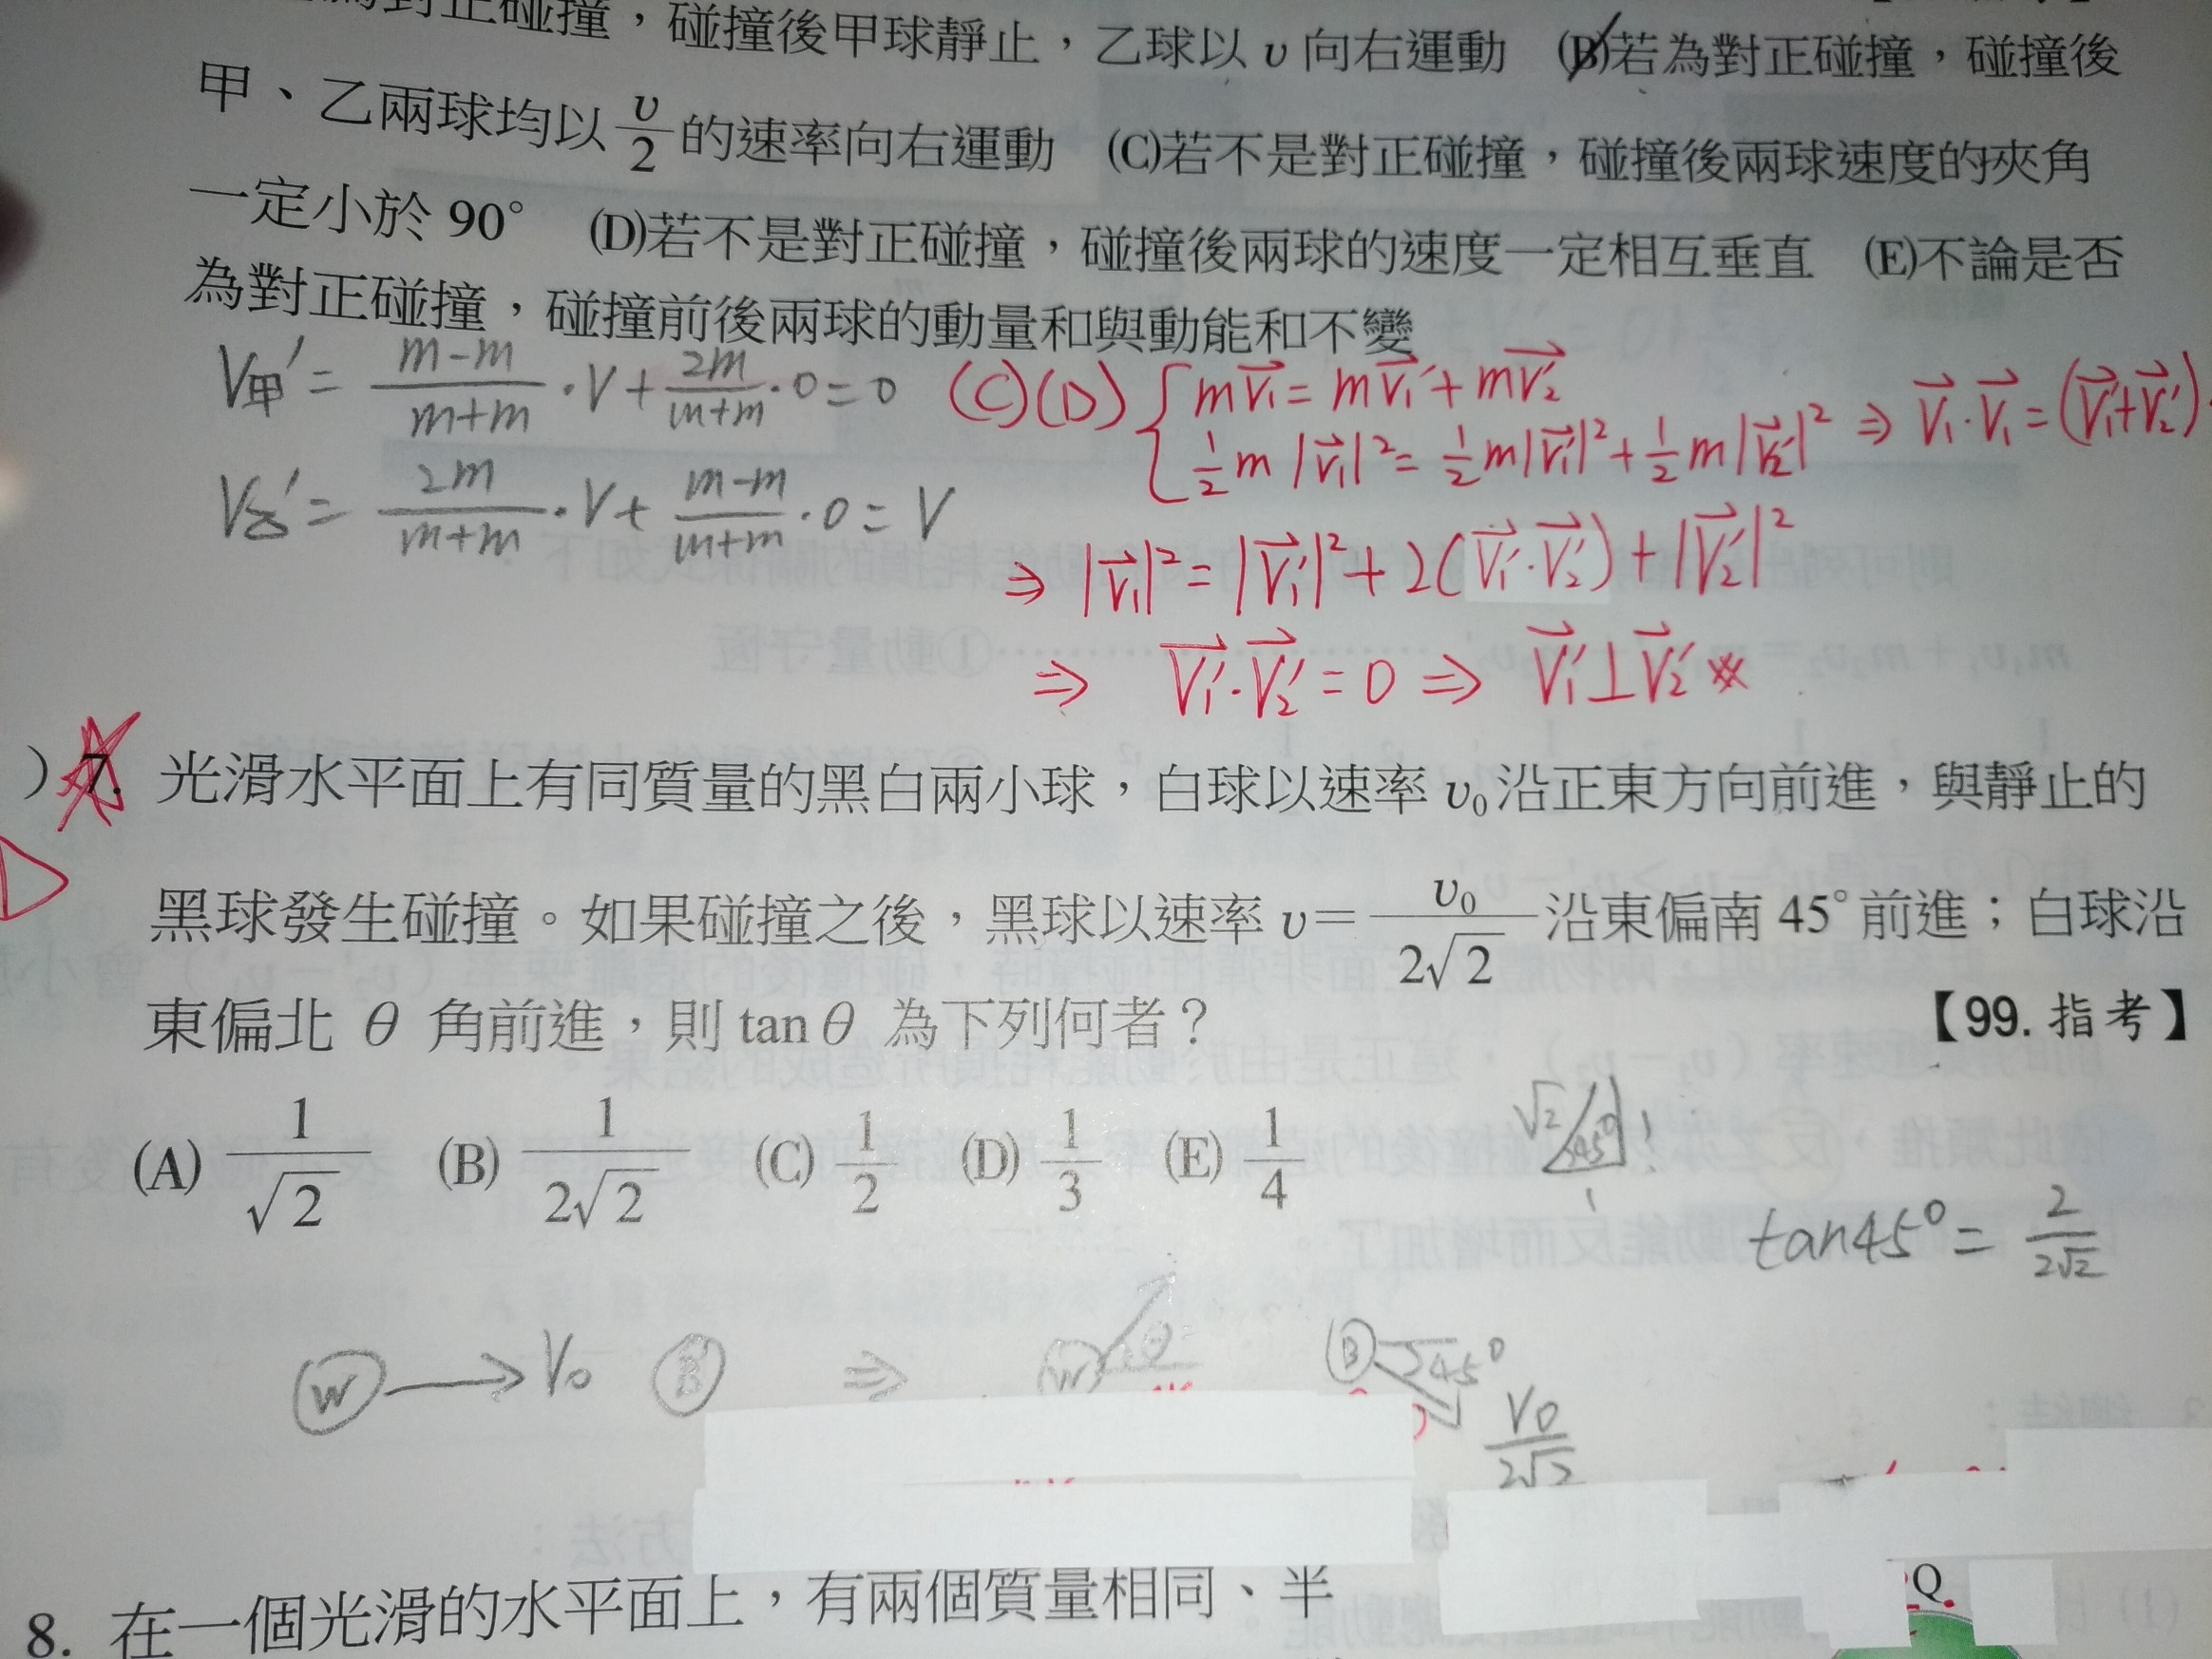 為對正碰撞，碰撞後甲球靜止，乙球以 υ 向右運動 (B)若為對正碰撞，碰撞後
甲、乙兩球均以 υ/2 的速率向右運動 (C)若不是對正碰撞，碰撞後兩球速度的夾角
一定小於 90° (D)若不是對正碰撞，碰撞後兩球的速度一定相互垂直 (E)不論是否
為對正碰撞，碰撞前後兩球的動量和與動能和不變
V甲′ = (m−m)/(m+m) · V + 2m/(m+m) · 0 = 0
V乙′ = 2m/(m+m) · V + (m−m)/(m+m) · 0 = V
(C)(D) { mV⃗₁ = mV⃗₁′ + mV⃗₂′
½m|V⃗₁|² = ½m|V⃗₁′|² + ½m|V⃗₂′|² ⇒ V⃗₁·V⃗₁ = (V⃗₁′+V⃗₂′)·
⇒ |V⃗₁|² = |V⃗₁′|² + 2(V⃗₁′·V⃗₂′) + |V⃗₂′|²
⇒ V⃗₁′·V⃗₂′ = 0 ⇒ V⃗₁′⊥V⃗₂′ ※
)7. 光滑水平面上有同質量的黑白兩小球，白球以速率 υ₀ 沿正東方向前進，與靜止的
黑球發生碰撞。如果碰撞之後，黑球以速率 υ＝υ₀/2√2 沿東偏南 45° 前進；白球沿
東偏北 θ 角前進，則 tan θ 為下列何者？ 【99. 指考】
(A) 1/√2 (B) 1/2√2 (C) 1/2 (D) 1/3 (E) 1/4
√2 45° 1
1
tan45° = 2/2√2
W → V₀ B ⇒ W θ B 45°
V₀/2√2
8. 在一個光滑的水平面上，有兩個質量相同、半
Q.